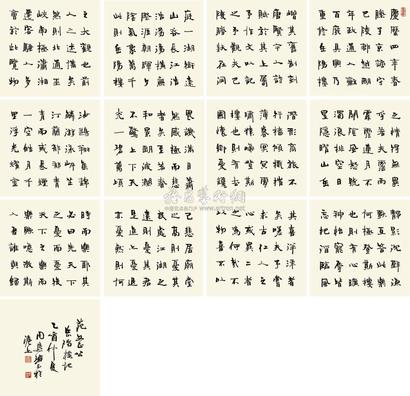 慶曆四年春
滕子京謫守
巴陵郡越明
年政通人和
百廢具興乃
重修岳陽樓
增其舊制刻
唐賢今人詩
賦於其上屬
予作文以記
之予觀夫巴
陵勝狀在洞
庭一湖銜遠
山吞長江浩
浩湯湯橫無
際涯朝暉夕
陰氣象萬千
此則岳陽樓
之大觀也前
人之述備矣
然則北通巫
峽南極瀟湘
遷客騷人多
會於此覽物
之情得無異
乎若夫霪雨
霏霏連月不
開陰風怒號
濁浪排空日
星隱耀山岳
潛形商旅不
行檣傾楫摧
薄暮冥冥虎
嘯猿啼登斯
樓也則有去
國懷鄉憂讒
畏譏滿目蕭
然感極而悲
者矣至若春
和景明波瀾
不驚上下天
光一碧萬頃
沙鷗翔集錦
鱗游泳岸芷
汀蘭郁郁青
青而或長煙
一空皓月千
里浮光躍金
靜影沉璧漁
歌互答此樂
何極登斯樓
也則有心曠
神怡寵辱皆
忘把酒臨風
其喜洋洋者
矣嗟夫予嘗
求古仁人之
心或異二者
之為何哉不
以物喜不以
己悲居廟堂
之高則憂其
民處江湖之
遠則憂其君
是進亦憂退
亦憂然則何
時而樂耶其
必曰先天下
之憂而憂後
天下之樂而
樂歟噫微斯
人吾誰與歸
范文正公
岳陽樓記
乙酉